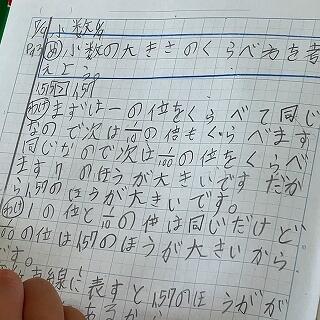 小数
め 小数の大きさのくらべ方を考
えよう
わけ まずは一の位をくらべて同じ
なので次は1/10の位もくらべます
同じなので次は1/100の位をくらべ
ます7のほうが大きいです だか
ら1,57のほうが大きいです。
わけ 1の位と1/10の位は同じだけど
の位は1,57のほうが大きいから
です。
直線に表すと1,57のほうがが